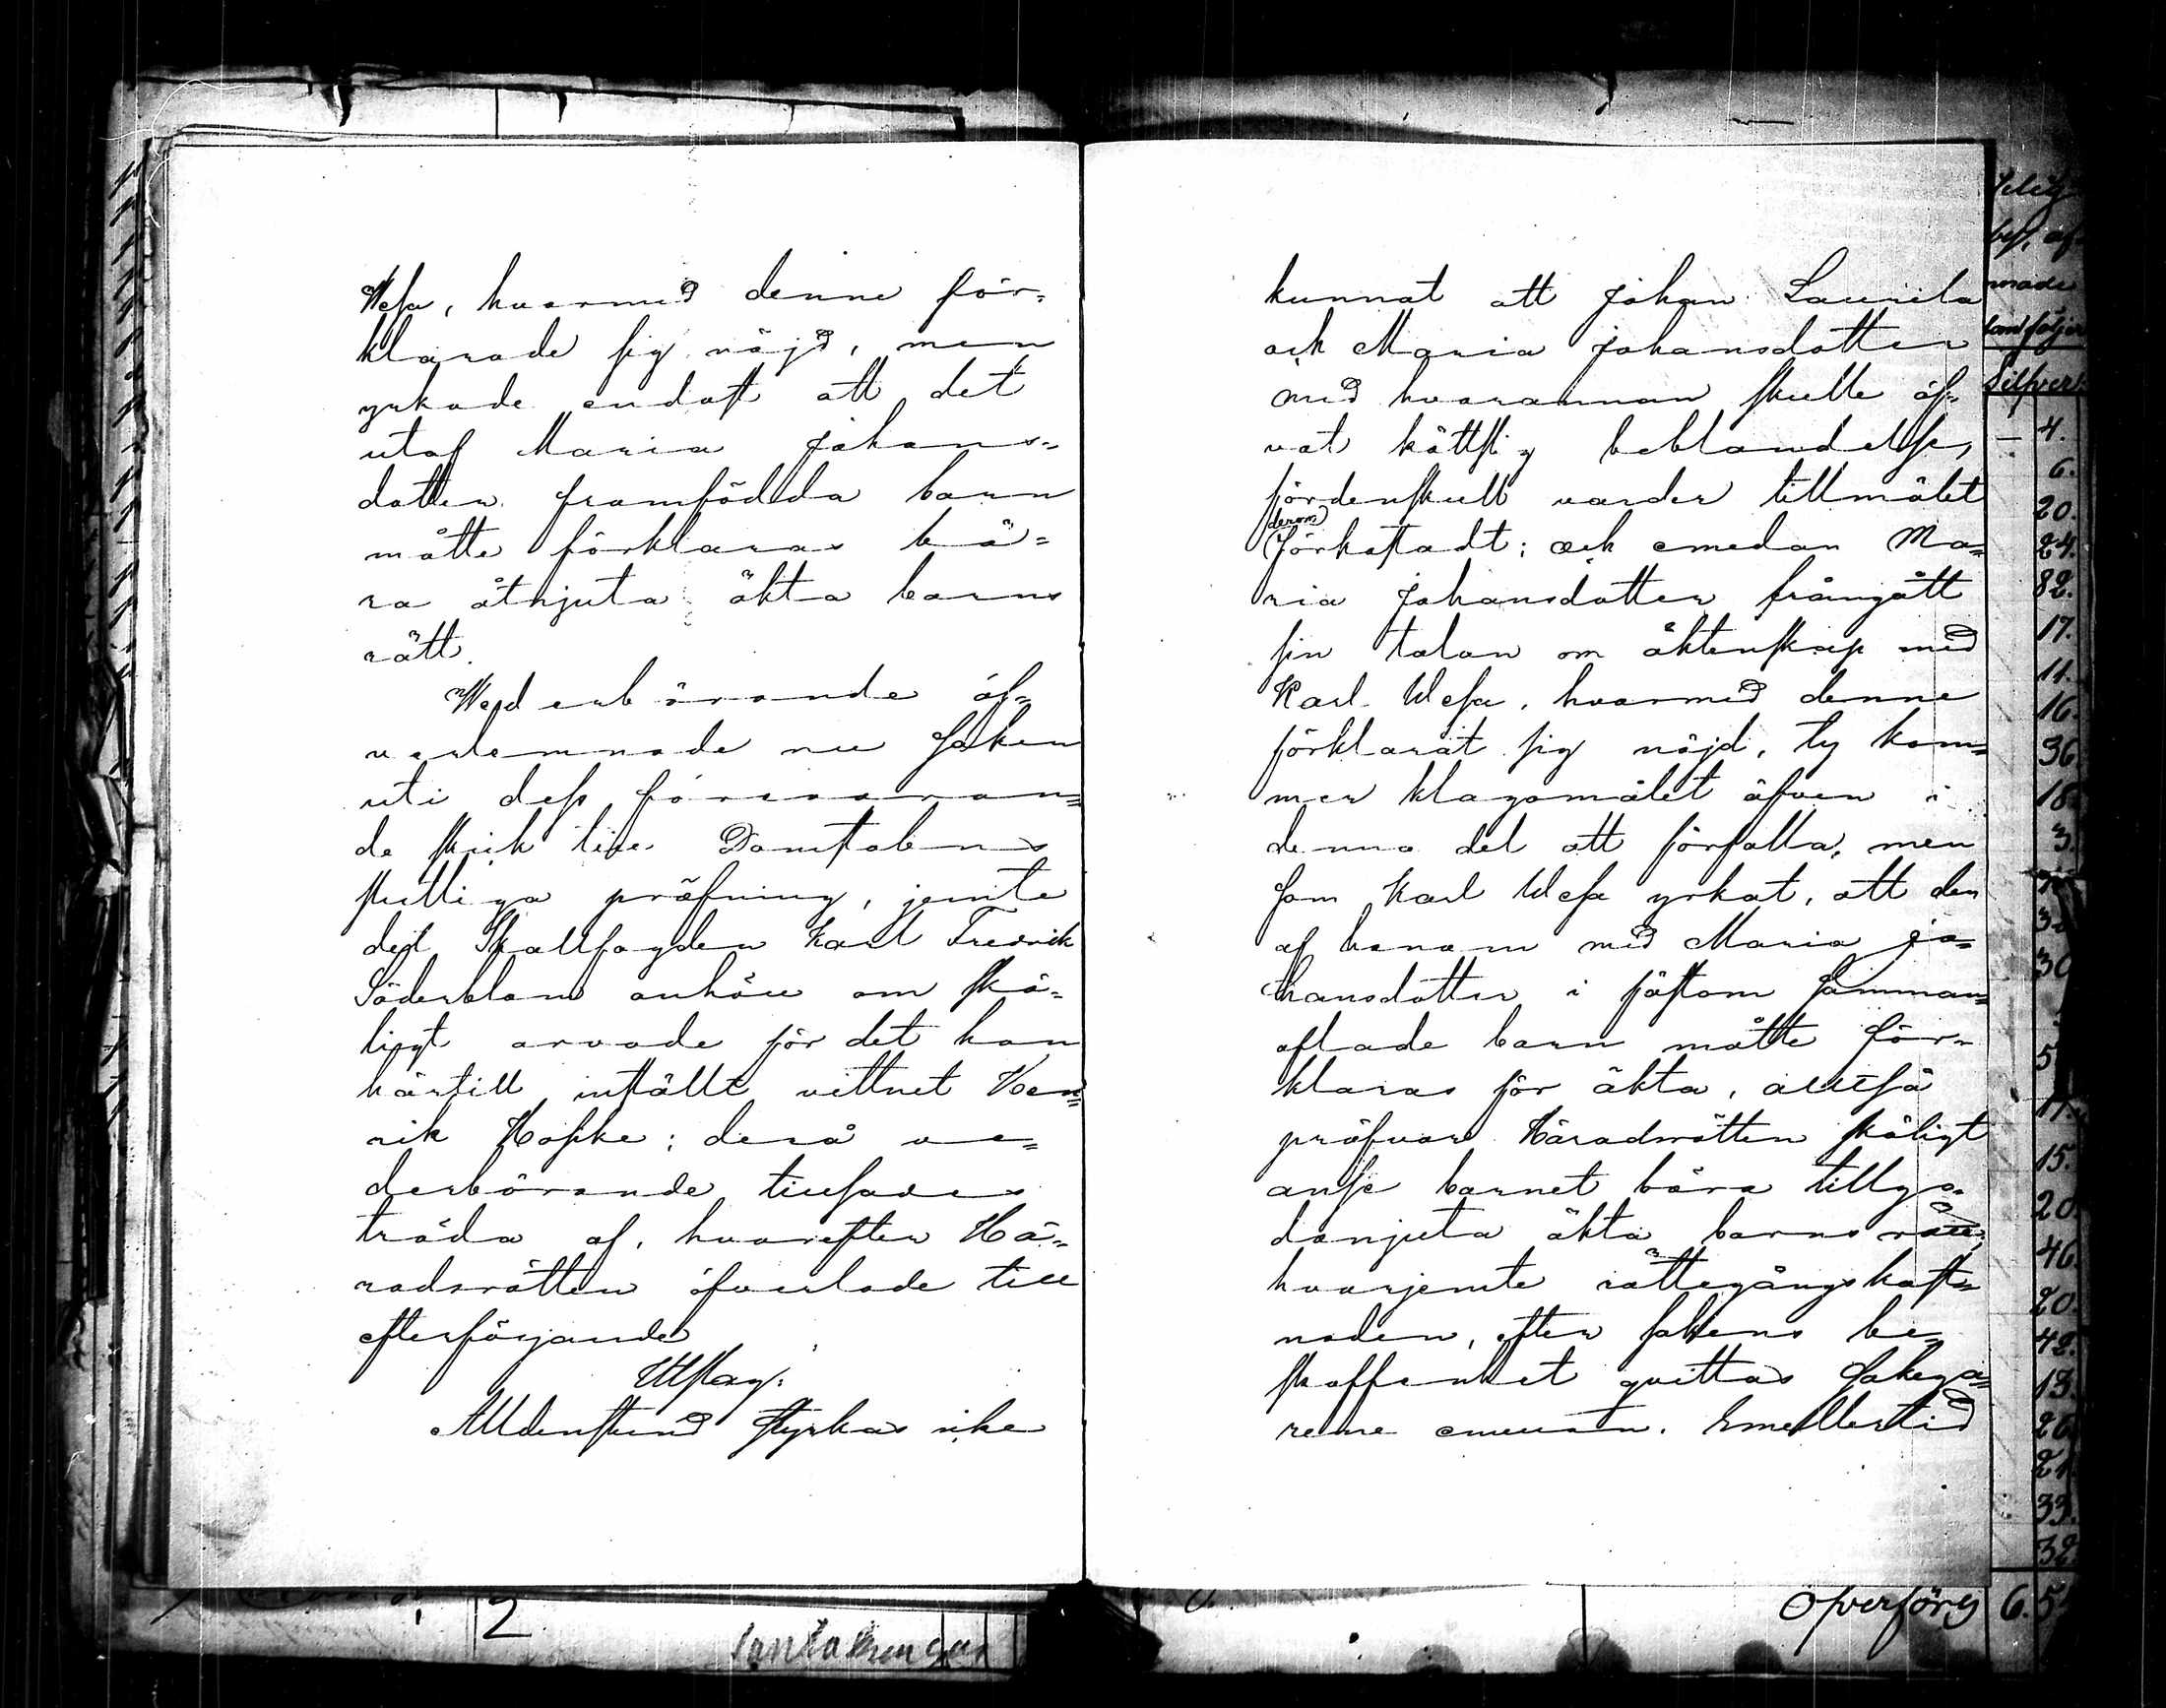 Wesa, hvarmed denne för-
klarade sig nöjd, men
yrkade endast att det
utaf Maria Johans-
dotter framfödda barn
måtte förklaras bö-
ra åtnjuta äkta barns
rätt.
Wederbörande öf-
verlemnade nu saken
uti dess förevaran-
de skick till Domstolens
slutliga pröfning, jemte
det Skallfogden Karl Fredrik
Söderblom anhöll om skä-
ligt arvode för det han
härtill inställt vittnet Hen-
rik Hopke; derå ve-
derbörande tillsades
träda af, hvarefter Hä-
radsrätten öfverlade till
efterföljande
Utslag:
Alldenstund styrkas icke
kunnat att Johan Laurila
och Maria Johansdotter
med hvarannan skulle öf-
vat köttslig beblandelse,
fördenskull varder tillmålet
derom
förkastadt; och emedan Ma-
ria Johansdotter frångått
sin talan om äktenskap med
Karl Wesa, hvarmed denne
förklarat sig nöjd, ty kom-
mer klagomålet äfven i
denna del att förfalla, men
som Karl Wesa yrkat, att den
af honom med Maria Jo-
hansdotter i sästom samman-
aflade barn måtte för-
klaras för äkta, alltså
pröfvar Häradsrätten skäligt
anse barnet böra tillgo-
donjuta äkta barns rätt;
hvarjemte rättegångskost-
naden, efter sakens be-
skaffenhet qvittas sakega-
rene emellan. Emellertid
måde
Silfver.
4.
6.
20.
24.
82.
17.
11.
16.
36
18
3.
30
5
17.
15.
20.
46.
20.
42.
13.
26
21.
33.
32.
2
Öfverförs 6.5